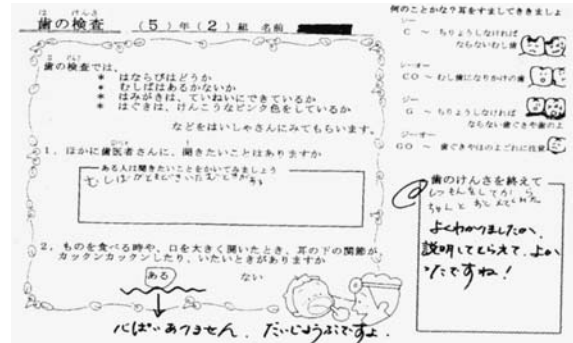 は けんさ
歯の検査 (5)年(2)組 名前
歯の検査では、
* はならびはどうか
* むしばはあるかないか
* はみがきは、ていねいにできているか
* はぐきは、けんこうなピンク色をしているか
などをはいしゃさんにみてもらいます。
1. ほかに歯医者さんに、聞きたいことはありますか
ある人は聞きたいことをかいてみましょう
2. ものを食べる時や、口を大きく開いたとき、耳の下の関節が
カックンカックンしたり、いたいときがありますか
ある ない
心ぱいありません。だいじょうぶですよ。
何のことかな?耳をすましてききましょ
シー
C ~ ちりょうしなければ
ならないむし歯
シーオー
CO ~ むし歯になりかけの歯
ジー
G ~ ちりょうしなければ
ならない歯ぐきや歯のよ
ジーオー
GO ~ 歯ぐきやはのよごれに注意
歯のけんさを終えて
しつもんをしてから
ちゃんと
よくわかりましたか、
説明してもらえて、よか
ったですね!